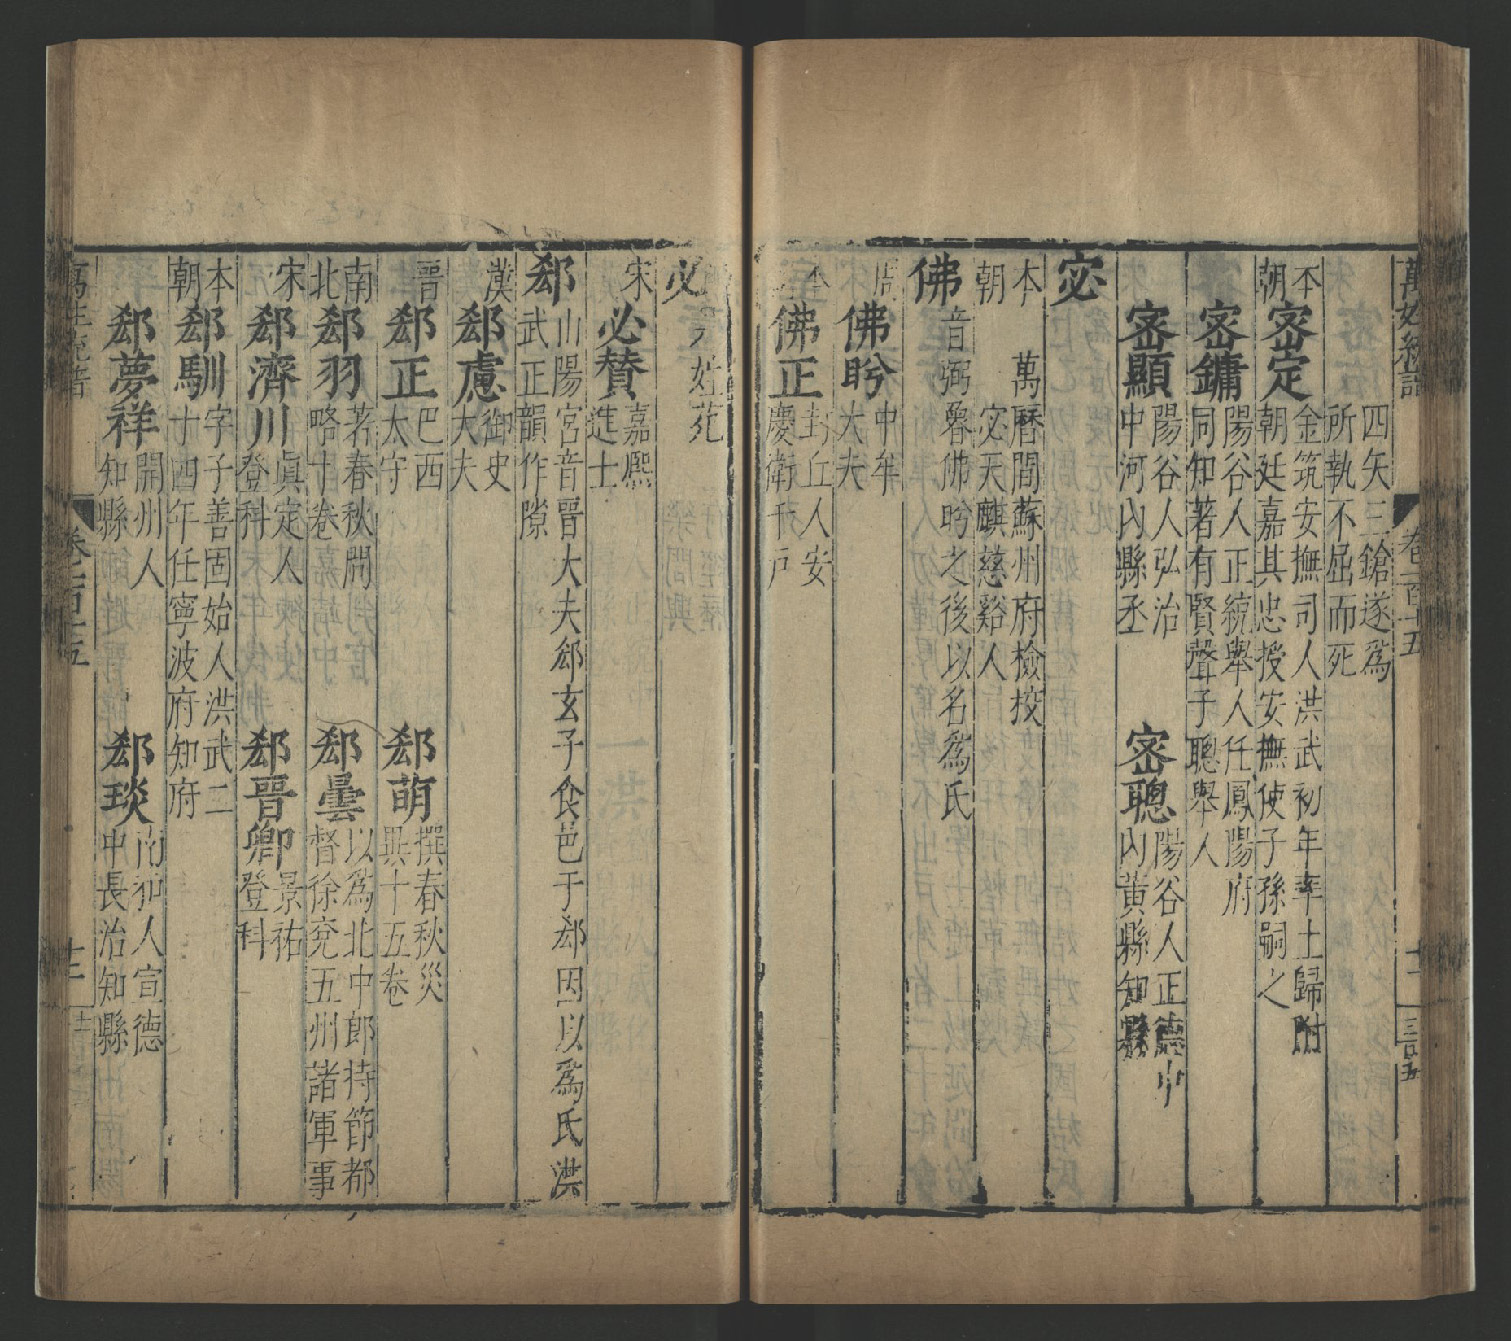 萬姓統譜
卷一百十五
四矢三鎗遂爲
所執不屈而死
本朝
密定
金筑安撫司人洪武初年率土歸附
朝廷嘉其忠授安撫使子孫嗣之
密鏞
陽谷人正統舉人任鳳陽府
同知著有賢聲子聰舉人
密顯
陽谷人弘治
中河內縣丞
密聰
陽谷人正德中
內黃縣知縣
宓
本朝
萬曆間蘇州府檢校
宓天麒慈谿人
佛
音弼魯佛肸之後以名爲氏
周
佛肸
中牟
大夫
本
佛正
封丘人安
慶衛千戶
必
姓苑
宋
必賛
嘉熙
進士
郄
山陽宮音晉大夫郄玄子食邑于郄因以爲氏洪
武正韻作隙
漢
郄慮
御史
大夫
晉
郄正
巴西
太守
郄萌
撰春秋災
異十五卷
南北
郄羽
著春秋開
略十卷
郄曇
以爲北中郎持節都
督徐兗五州諸軍事
宋
郄濟川
眞定人
登科
郄晉卿
景祐
登科
本朝
郄馴
字子善固始人洪武二
十四年任寧波府知府
郄夢祥
開州人
知縣
郄琰
南和人宣德
中長治知縣